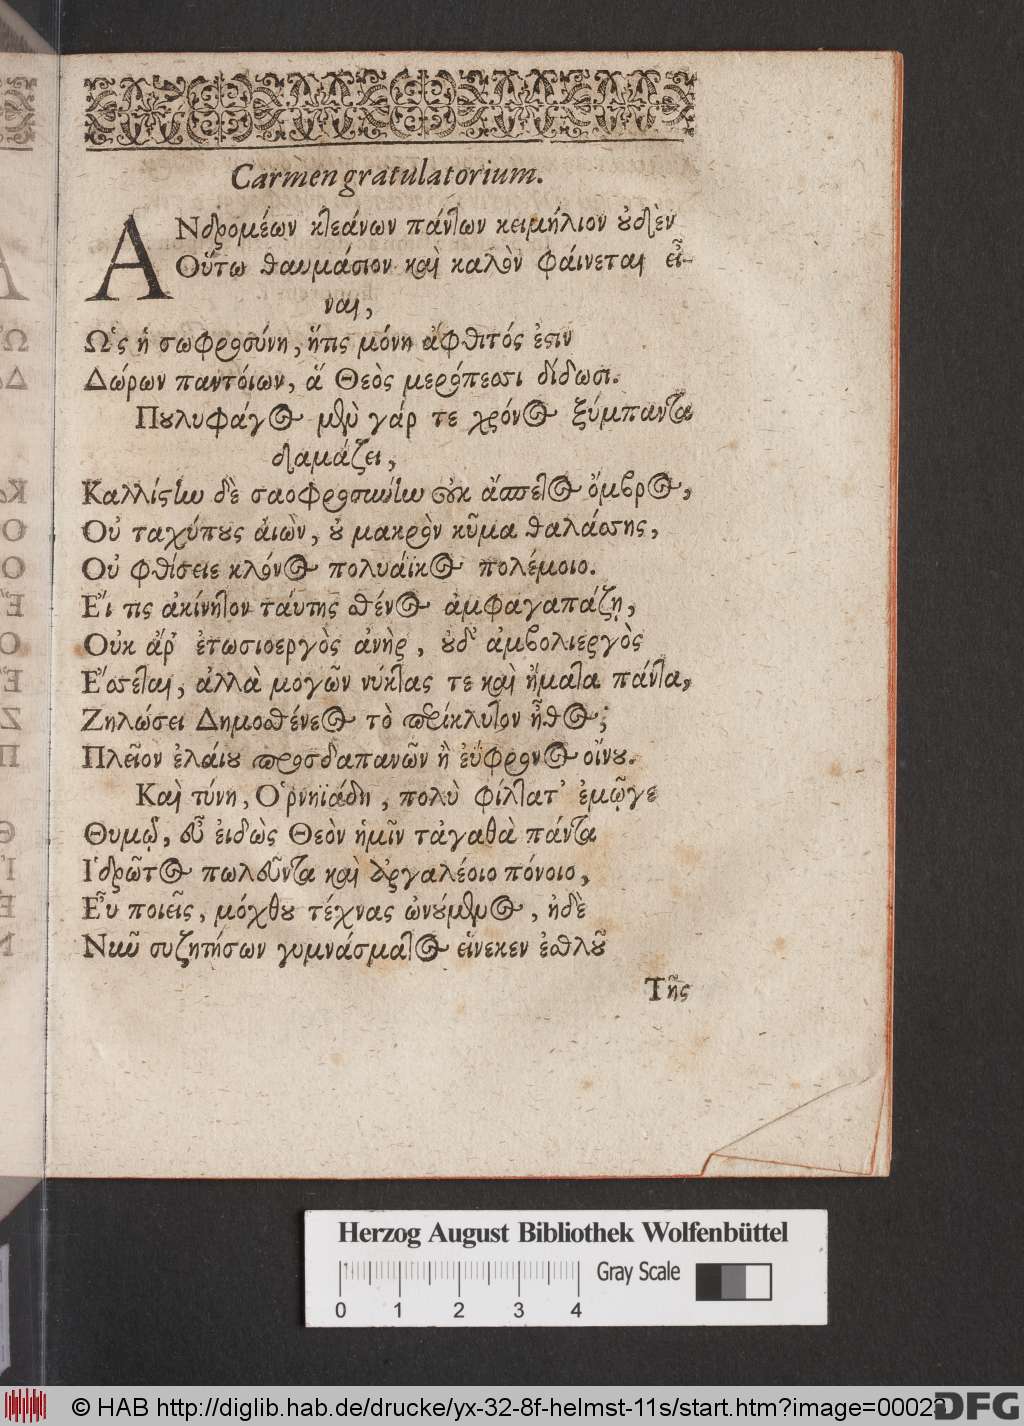 Carmen gratulatorium.
ΑΝδρομέων κτεάνων πάντων κειμήλιον ȣ̓δὲν
Οὕτω θαυμάσιον καὶ καλὸν φάινεται εἶ-
ναι,
Ὡς ἡ σωφροσύνη, ἥτις μόνη ἄφθιτός ἐστιν
Δώρων παντόιων, ἅ Θεὸς μερόπεσσι δίδωσι.
Πȣλυφάγος μὲν γάρ τε χρόνος ξύμπαντα
δαμάζει,
Καλλίστην δὲ σαοφροσύνην οὐκ ἄσπετος ὄμβρος,
Οὐ ταχύπȣς ἀιὼν, ȣ̓ μακρὸν κῦμα θαλάσσης,
Οὐ φθίσειε κλόνος πολυάϊκος πολέμοιο.
Εἴ τις ἀκίνητον ταύτης σθένος ἀμφαγαπάζῃ,
Οὐκ ἄρ' ἐτωσιοεργὸς ἀνὴρ, ȣ̓δ' ἀμβολιεργὸς
Ἔσσεται, ἀλλὰ μογῶν νύκτας τε καὶ ἤματα πάντα,
Ζηλώσει Δημοσθένεος τὸ περίκλυτον ἦθος;
Πλεῖον ἐλάιȣ προσδαπανῶν ἢ ἐΰφρονος οἴνȣ.
Καὶ τύνη, Ὀρνηϊάδη, πολὺ φίλτατ' ἐμῷγε
Θυμῷ, εὖ ἐιδὼς Θεὸν ἡμῖν τἀγαθὰ πάντα
Ἱδρῶτος πωλεῦντα καὶ ἀργαλέοιο πόνοιο,
Εὖ ποιεῖς, μόχθȣ τέχνας ὠνύμενος, ἠδὲ
Νῦν συζητήσων γυμνάσματος εἵνεκεν ἐσθλοῦ
Τῆς
Herzog August Bibliothek Wolfenbüttel
Gray Scale
0 1 2 3 4
© HAB http://diglib.hab.de/drucke/yx-32-8f-helmst-11s/start.htm?image=00023
DFG